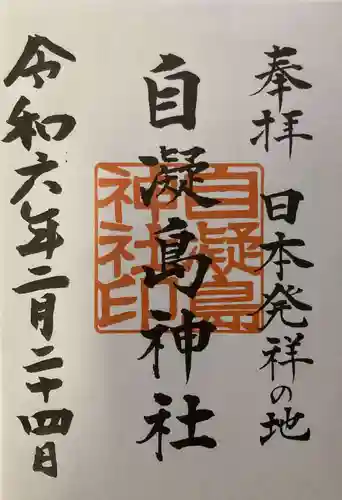 奉拝 日本発祥の地
自凝島神社
自凝島神社印
令和六年二月二十四日